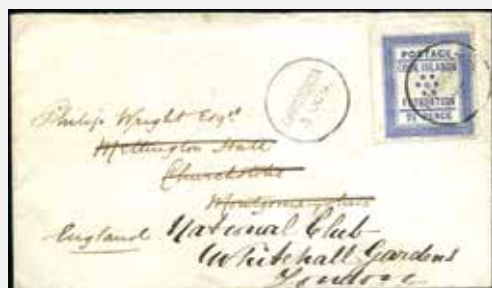 POSTAGE
COOK ISLANDS
FEDERATION
Philip Wright Esqre
Mellington Hall
Churchstoke
Montgomeryshire
England National Club
Whitehall Gardens
London